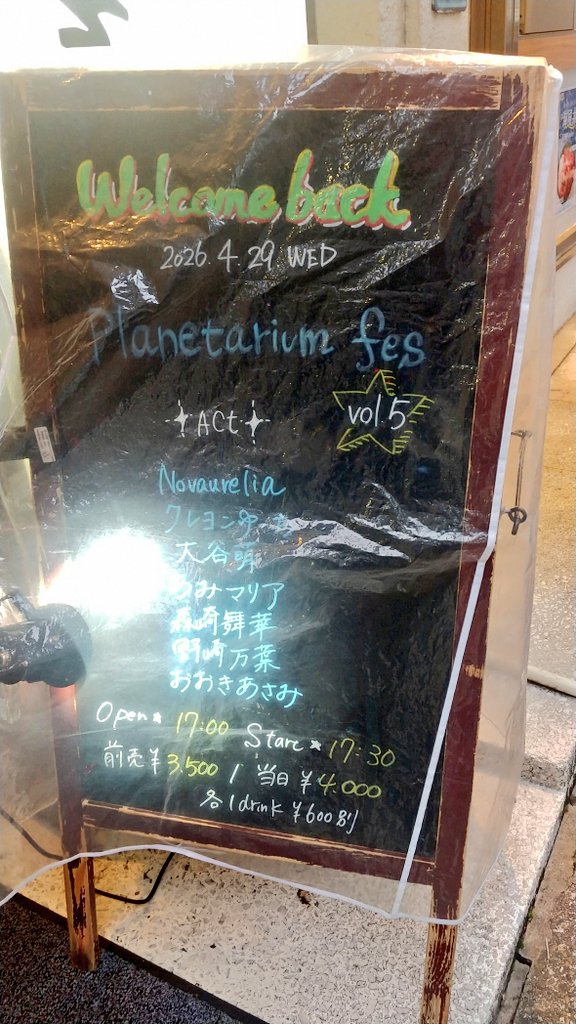 Welcome back
2026. 4. 29 WED
Planetarium fes
vol.5
ACt
Novaurelia
クレヨン
大谷明
みマリア
森崎舞華
野崎万葉
おおきあさみ
Open★ 17:00 Start★ 17:30
前売¥3.500 / 当日¥4.000
各1drink ¥600別